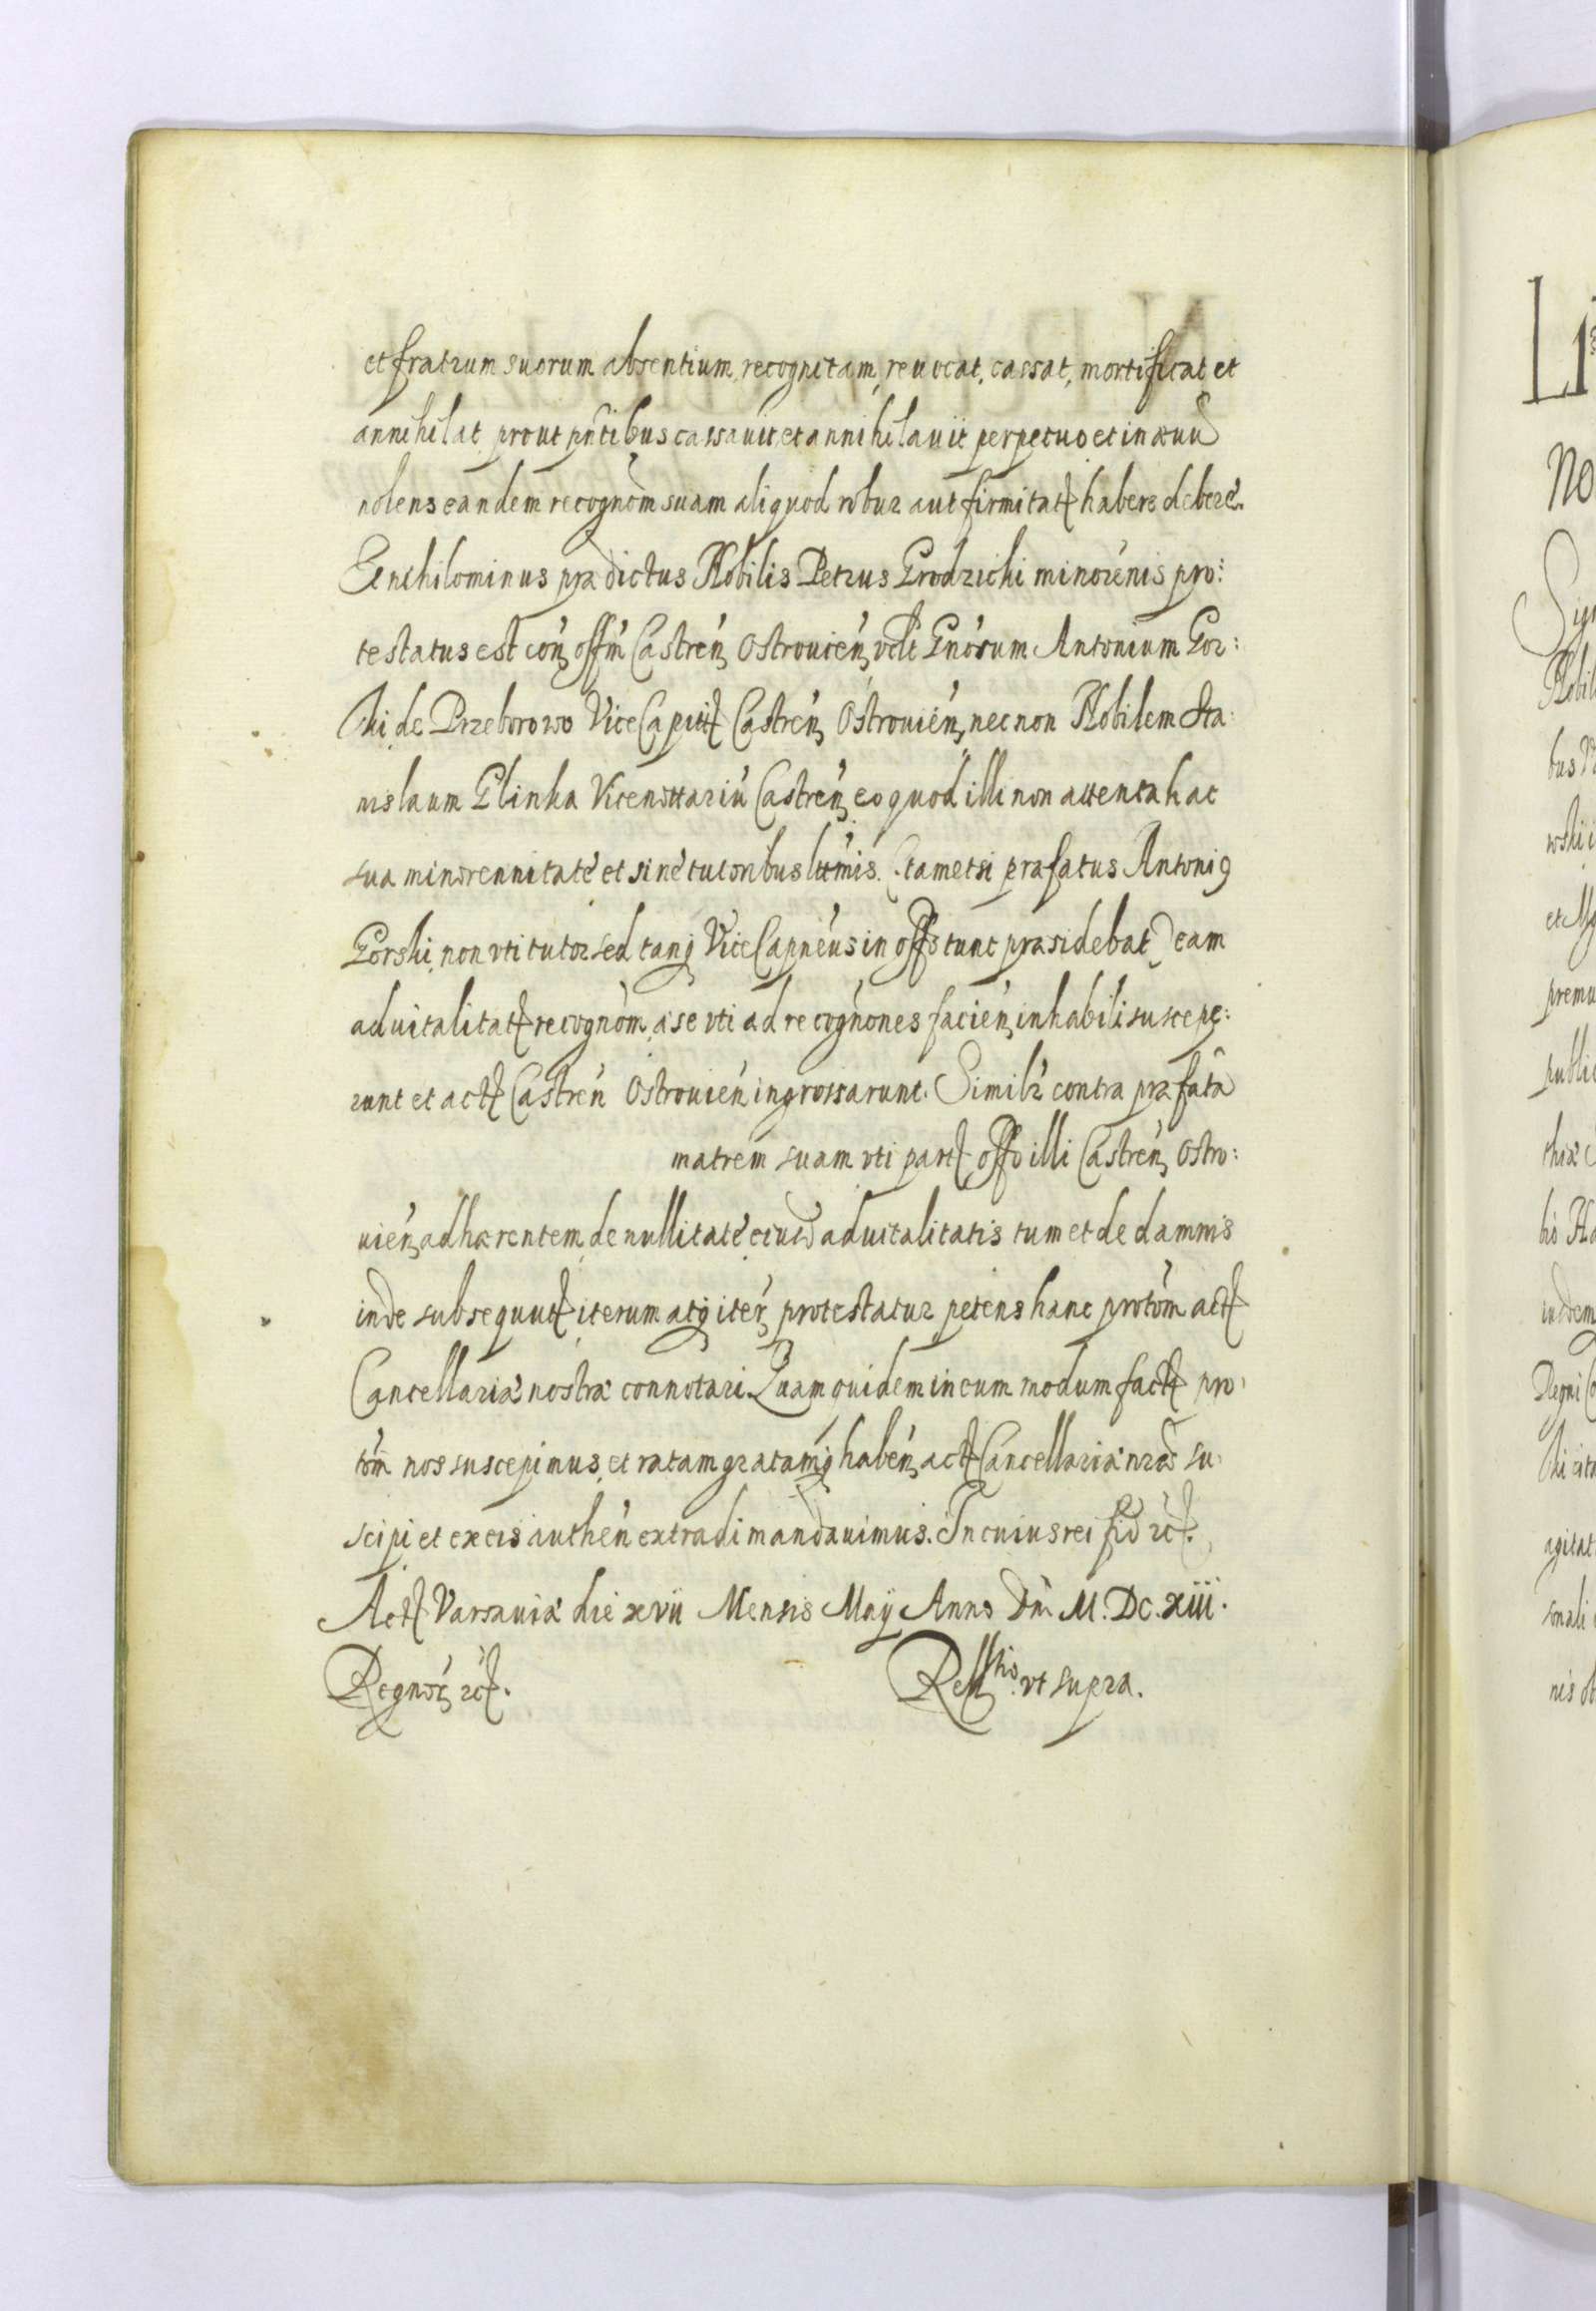 et fratrum suorum absentium, recognitam, reuocat, cassat, mortificat et
annihilat prout pñtibus cassauit et annihilauit perpetuo et in æuũ
nolens eandem recognòm suam aliquod robur aut firmitat habere debere.
Et nihilominus prædictus Nobilis Petrus Grodzicki minorenis pro:
testatus est con offm Castren Ostrouien vdlt Gnosum Antonium Gor:
ski de Przeborowo Vice Capit Castren Ostrouien, necnon Nobilem Sta:
nislaum Glinka Vicenottariu Castren eo quod illi non attenta hac
sua minorennitate et sine tutoribus lttmis. (tametsi præfatus Antoni9
Gorski, non vti tutor sed tanq Vice Capneus in offo tunc præsidebat) eam
aduitalitat recognom, a se vti ad recognones facien inhabili suscepe:
runt et act Castren Ostrouien ingrossarunt. Similr contra præfatã
matrem suam vti part offo illi Castren Ostro:
uien adhærentem, de nullitate eiusd aduitalitatis tum et de damnis
inde subsequut iterum atq iter protestatur petens hanc protom act
Cancellariæ nostræ connotari. Quam quidem in eum modum fact pro:
tom nos suscepimus, et ratam gratamq haben act Cancellariæ nræ su:
scipi et ex eis authen extradi mandauimus. In cuius rei fid rc.
Act Varsauiæ die xvii Mensis Maÿ Anno Dni M. DC. xiii.
Regnor rc.
Rellatio vt supra.
Li
No
Sig
Nobil
bus
wski
et
premu
public
thiæ
no
iusdem
Regni
ski
agitat
sonali
nis ob